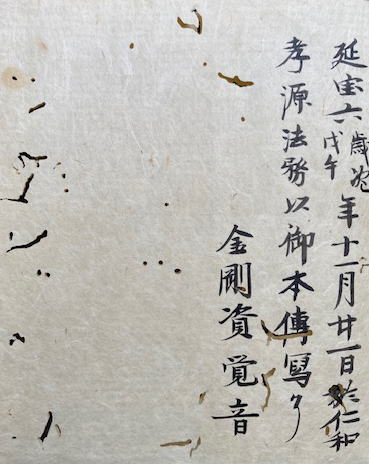 延宝六歳次戊午年十一月廿一日於仁和
孝源法務以御本傳寫了
金剛資覚音